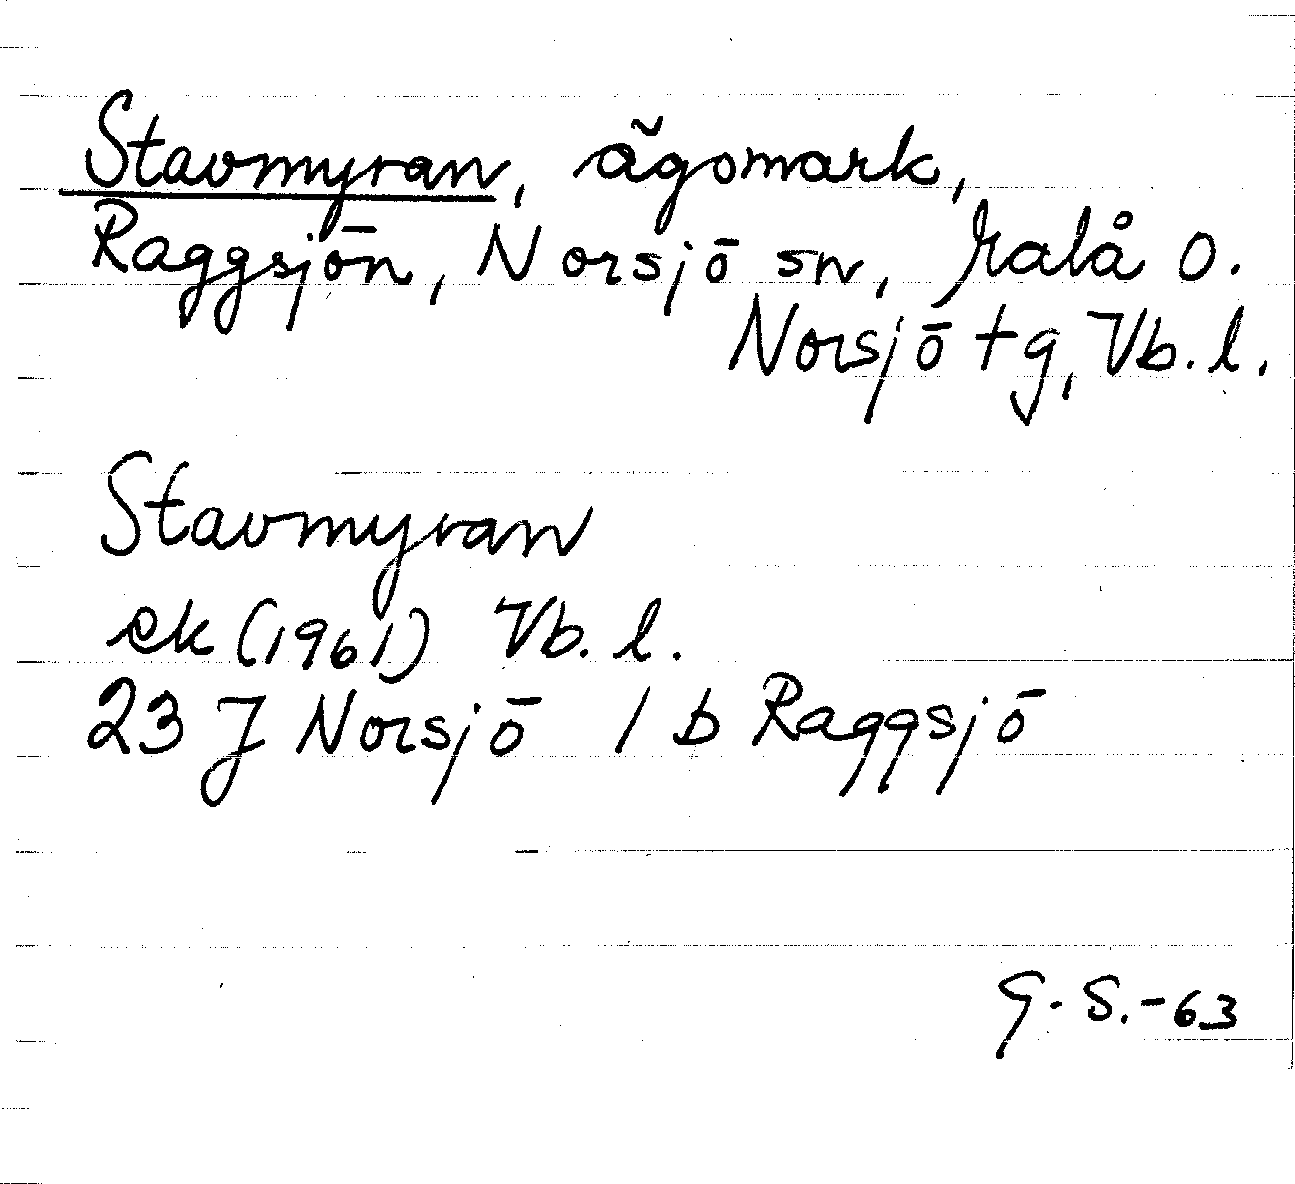 Stavmyran, ägomark,
Raggsjön, Norsjö sn, Malå o.
Norsjö tg, Vb. l.
Stavmyran
ek (1961) Vb. l.
23 J Norsjö 1 b Raggsjö
G. S. - 63